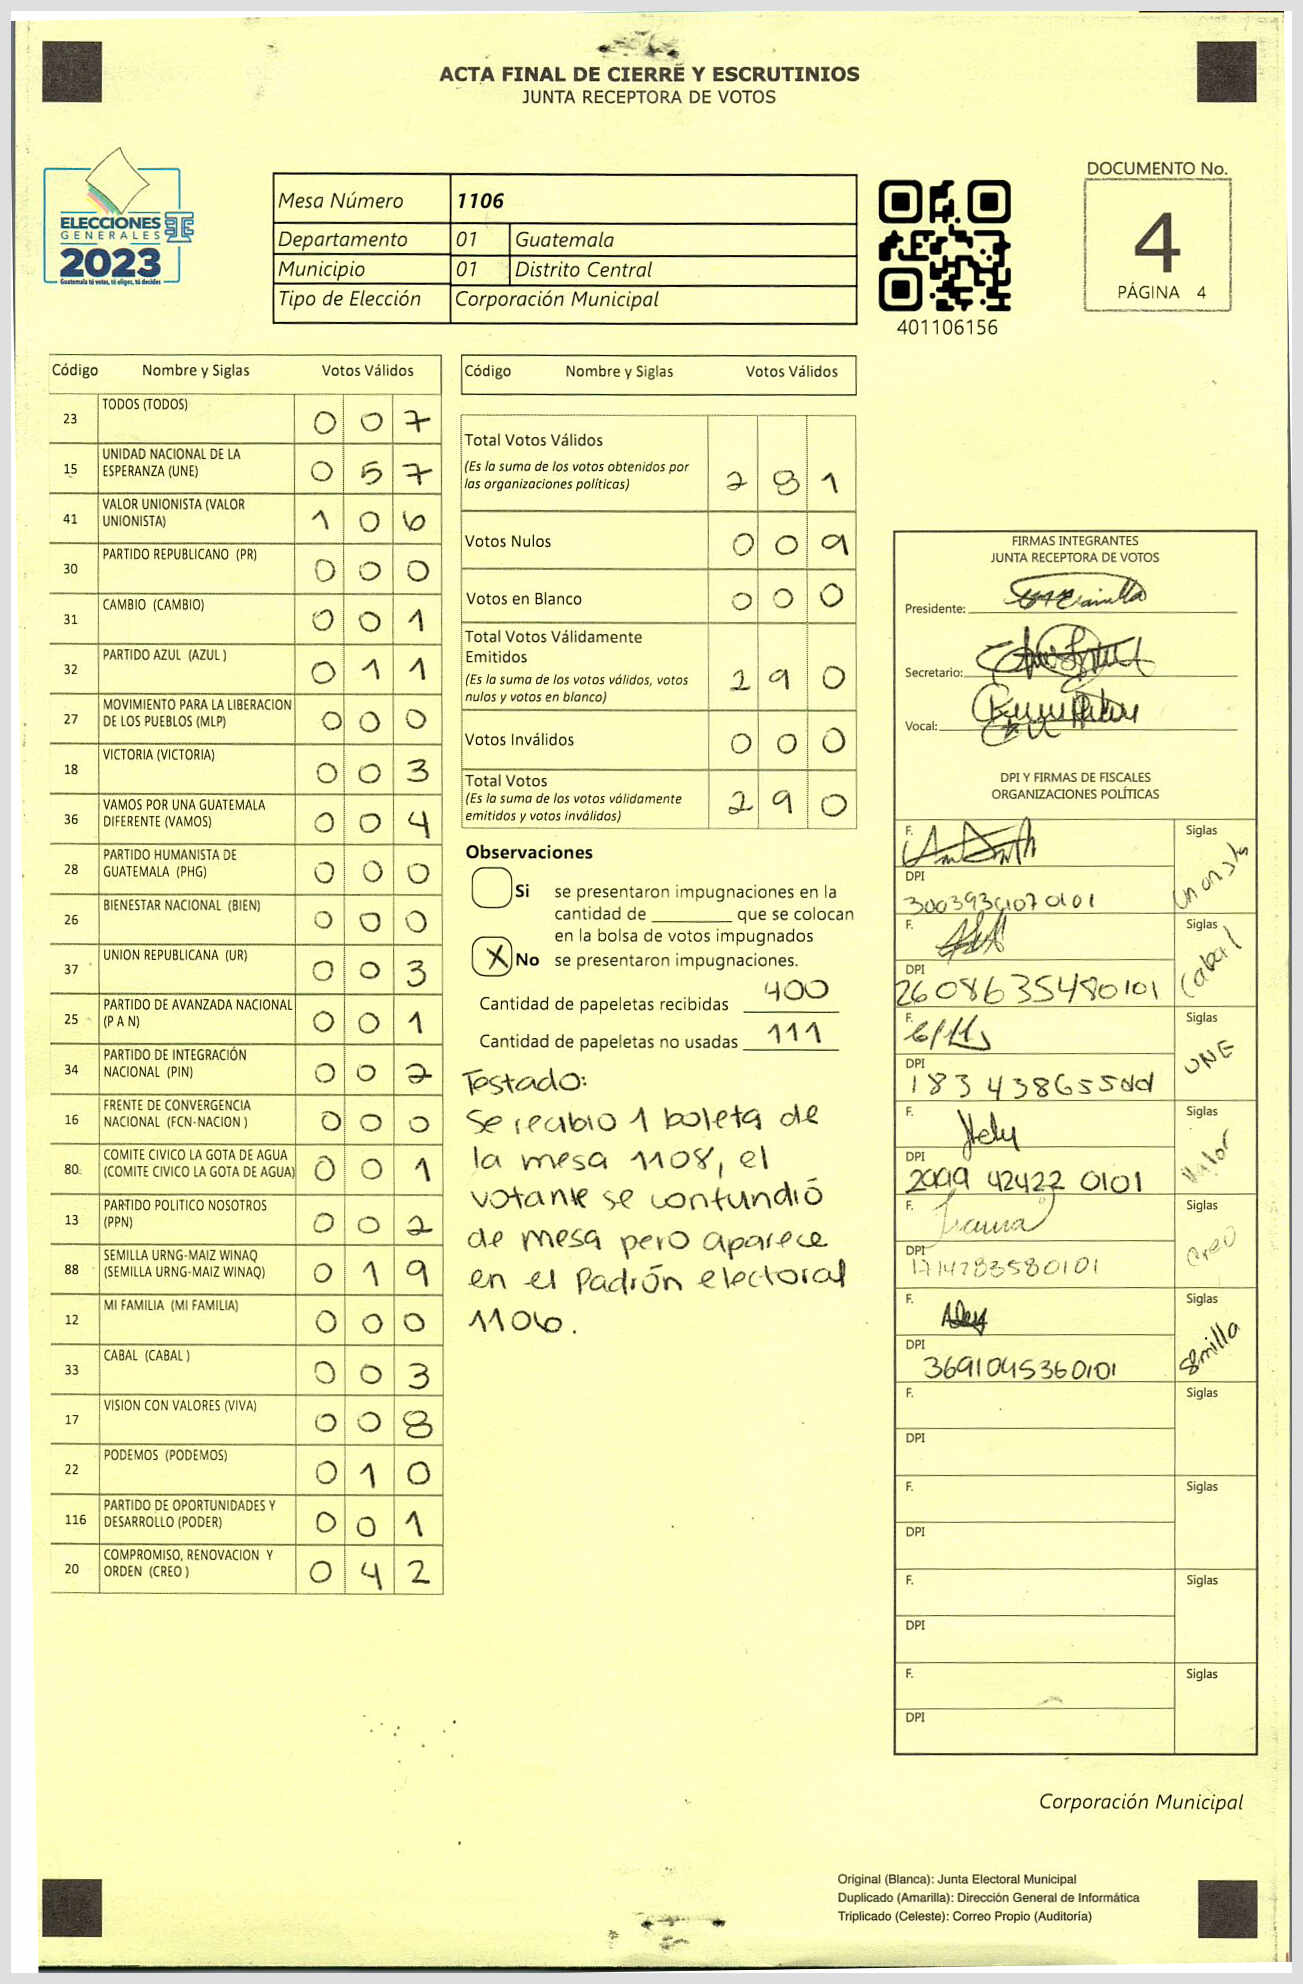 ACTA FINAL DE CIERRE Y ESCRUTINIOS
JUNTA RECEPTORA DE VOTOS
ELECCIONES
GENERALES
2023
Guatemala tú votas, tú eliges, tú decides
Mesa Número 1106
Departamento 01 Guatemala
Municipio 01 Distrito Central
Tipo de Elección Corporación Municipal
401106156
DOCUMENTO No.
4
PÁGINA 4
Código Nombre y Siglas Votos Válidos
23 TODOS (TODOS) 0 0 7
15 UNIDAD NACIONAL DE LA
ESPERANZA (UNE) 0 5 7
41 VALOR UNIONISTA (VALOR
UNIONISTA) 1 0 6
30 PARTIDO REPUBLICANO (PR) 0 0 0
31 CAMBIO (CAMBIO) 0 0 1
32 PARTIDO AZUL (AZUL ) 0 1 1
27 MOVIMIENTO PARA LA LIBERACION
DE LOS PUEBLOS (MLP) 0 0 0
18 VICTORIA (VICTORIA) 0 0 3
36 VAMOS POR UNA GUATEMALA
DIFERENTE (VAMOS) 0 0 4
28 PARTIDO HUMANISTA DE
GUATEMALA (PHG) 0 0 0
26 BIENESTAR NACIONAL (BIEN) 0 0 0
37 UNION REPUBLICANA (UR) 0 0 3
25 PARTIDO DE AVANZADA NACIONAL
(P A N) 0 0 1
34 PARTIDO DE INTEGRACIÓN
NACIONAL (PIN) 0 0 2
16 FRENTE DE CONVERGENCIA
NACIONAL (FCN-NACION ) 0 0 0
80 COMITE CIVICO LA GOTA DE AGUA
(COMITE CIVICO LA GOTA DE AGUA) 0 0 1
13 PARTIDO POLITICO NOSOTROS
(PPN) 0 0 2
88 SEMILLA URNG-MAIZ WINAQ
(SEMILLA URNG-MAIZ WINAQ) 0 1 9
12 MI FAMILIA (MI FAMILIA) 0 0 0
33 CABAL (CABAL ) 0 0 3
17 VISION CON VALORES (VIVA) 0 0 8
22 PODEMOS (PODEMOS) 0 1 0
116 PARTIDO DE OPORTUNIDADES Y
DESARROLLO (PODER) 0 0 1
20 COMPROMISO, RENOVACION Y
ORDEN (CREO ) 0 4 2
Código Nombre y Siglas Votos Válidos
Total Votos Válidos
(Es la suma de los votos obtenidos por
las organizaciones políticas) 2 8 1
Votos Nulos 0 0 9
Votos en Blanco 0 0 0
Total Votos Válidamente
Emitidos
(Es la suma de los votos válidos, votos
nulos y votos en blanco) 2 9 0
Votos Inválidos 0 0 0
Total Votos
(Es la suma de los votos válidamente
emitidos y votos inválidos) 2 9 0
Observaciones
Si se presentaron impugnaciones en la
cantidad de ________ que se colocan
en la bolsa de votos impugnados
X No se presentaron impugnaciones.
Cantidad de papeletas recibidas 400
Cantidad de papeletas no usadas 111
Testado:
Se recibio 1 boleta de
la mesa 1108, el
votante se confundió
de mesa pero aparece
en el Padrón electoral
1106.
FIRMAS INTEGRANTES
JUNTA RECEPTORA DE VOTOS
Presidente:
Secretario:
Vocal:
DPI Y FIRMAS DE FISCALES
ORGANIZACIONES POLÍTICAS
F. Siglas
Unionista
DPI
F. Siglas
Cabal
DPI
2608635480101
F. Siglas
UNE
DPI
F. Siglas
Valor
DPI
2099 42422 0101
F. Siglas
Creo
DPI
F. Siglas
Semilla
DPI
3691045360101
F. Siglas
DPI
F. Siglas
DPI
F. Siglas
DPI
F. Siglas
DPI
Corporación Municipal
Original (Blanca): Junta Electoral Municipal
Duplicado (Amarilla): Dirección General de Informática
Triplicado (Celeste): Correo Propio (Auditoría)